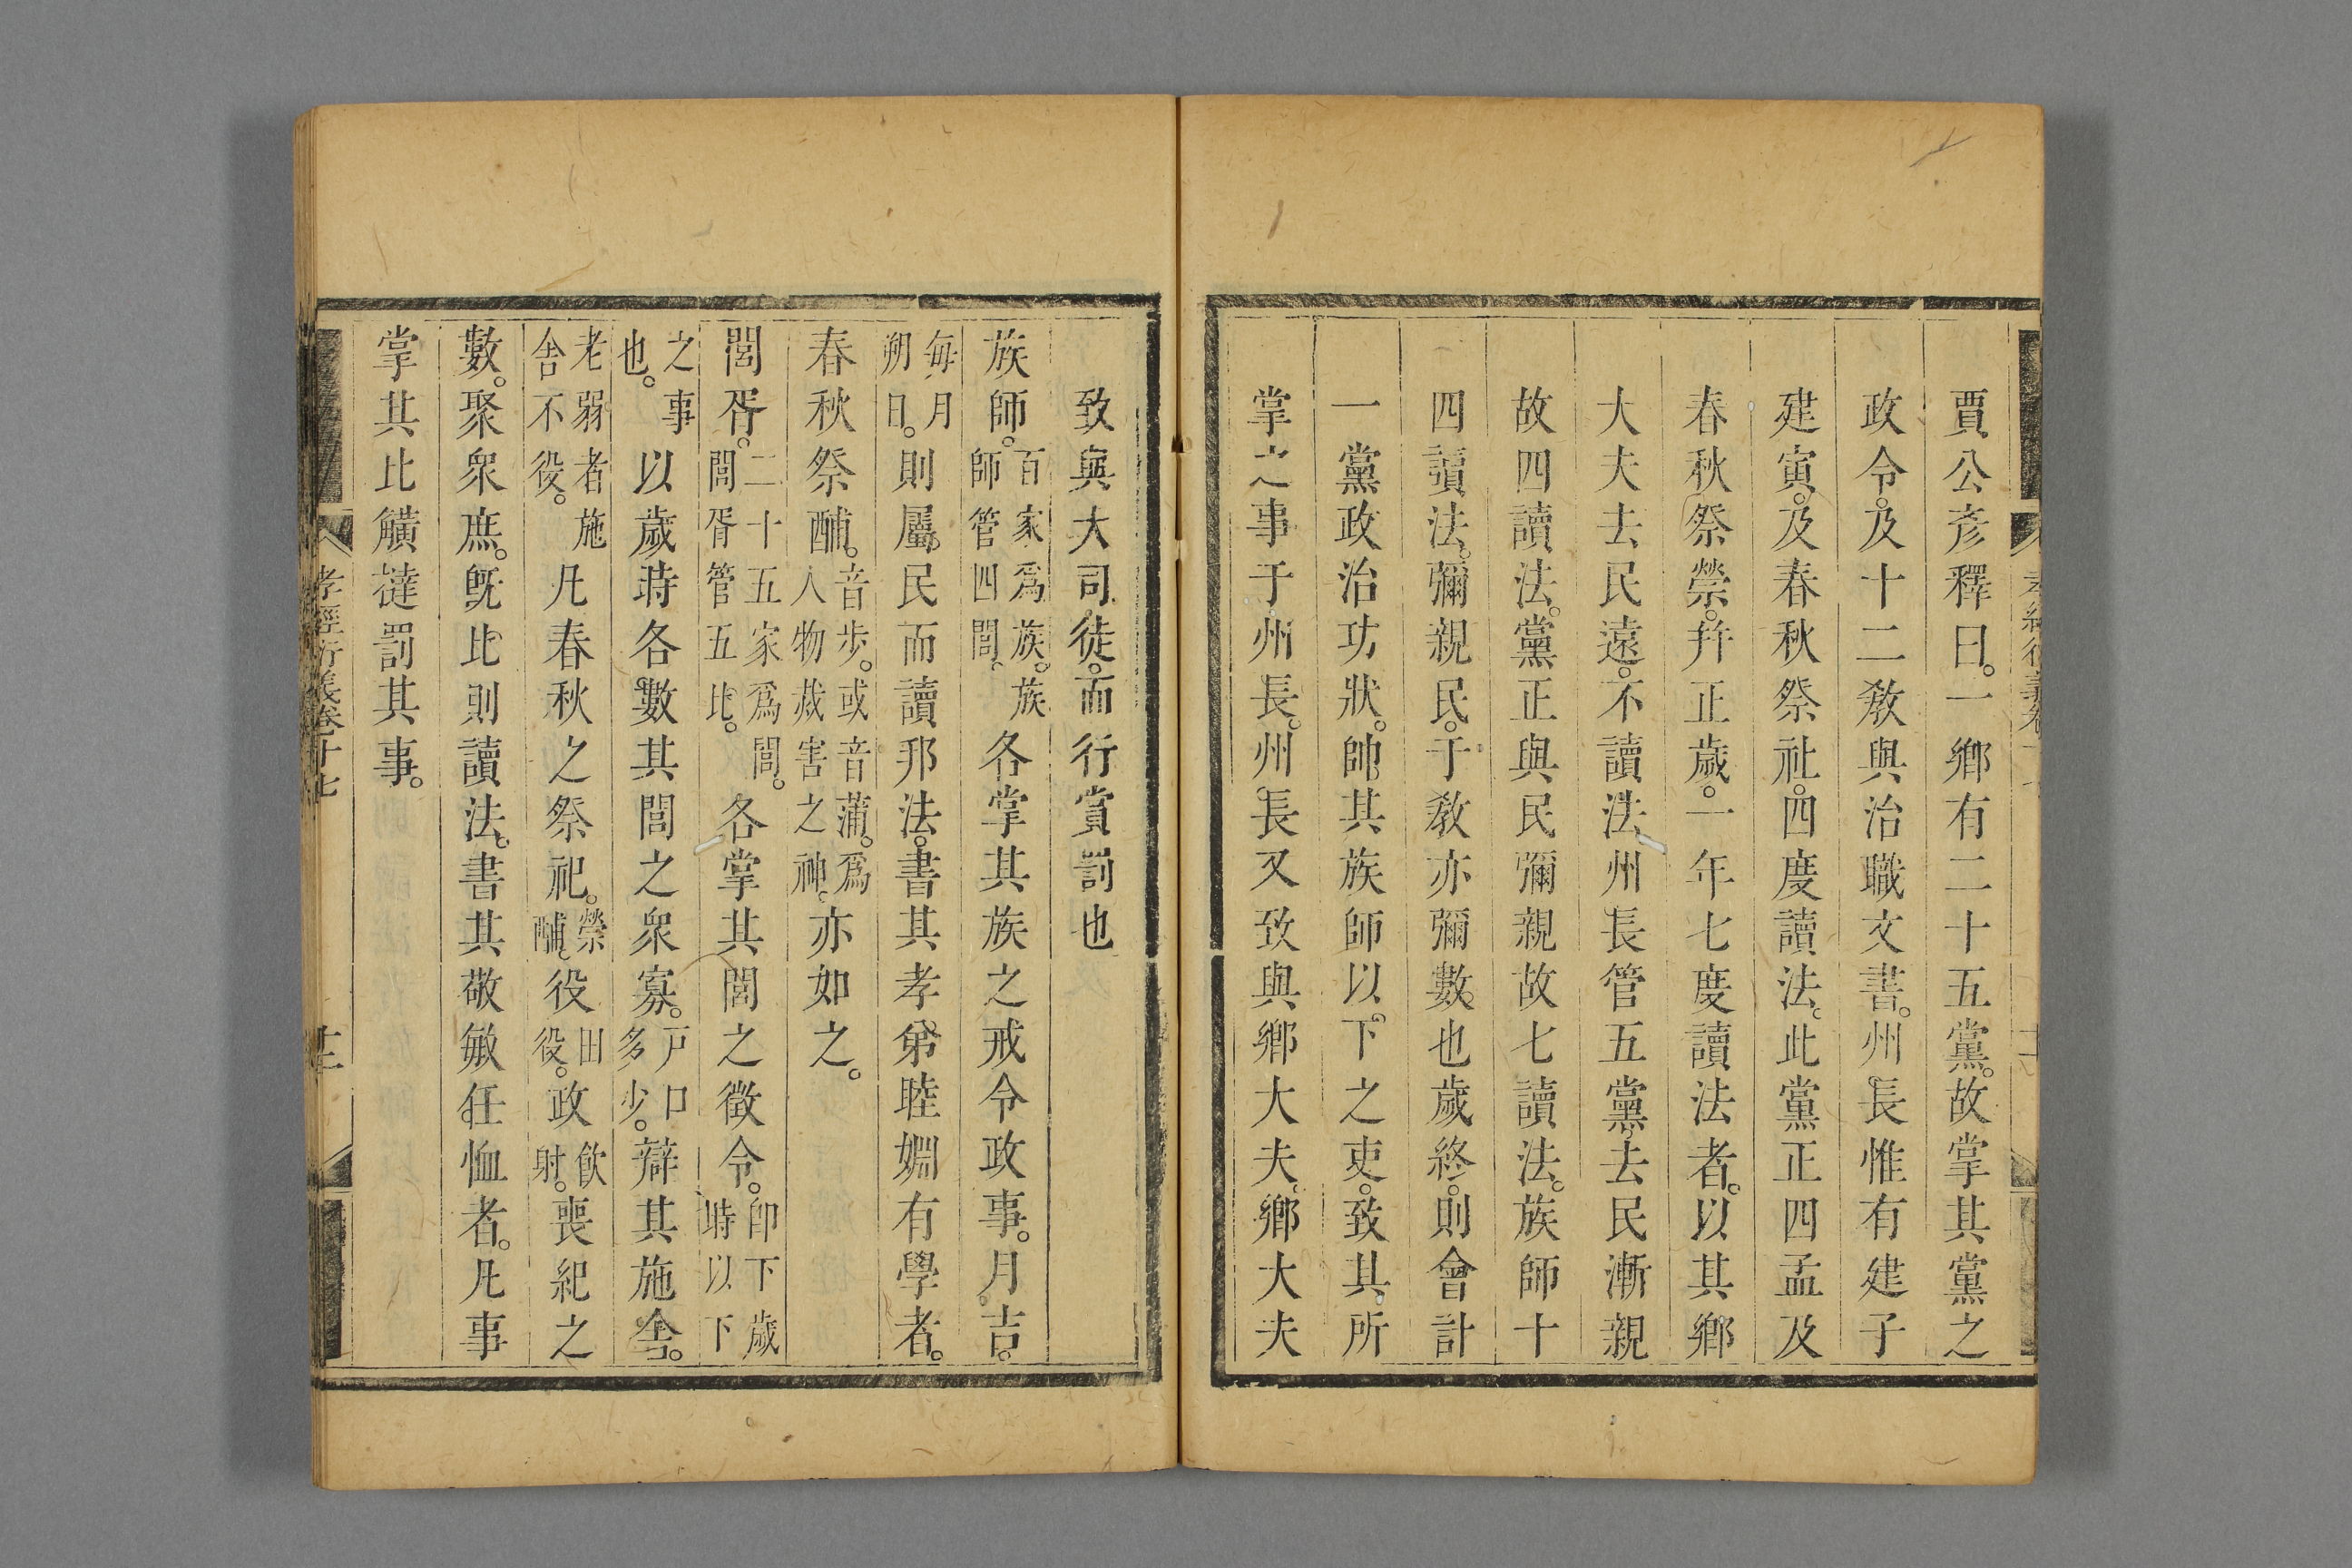 賈公彥釋曰。一鄉有二十五黨。故掌其黨之
政令。及十二敎與治職文書。州長惟有建子
建寅。及春秋祭社。四度讀法。此黨正四孟及
春秋祭禜。幷正歲。一年七度讀法者。以其鄉
大夫去民遠。不讀法。州長管五黨。去民漸親
故四讀法。黨正與民彌親故七讀法。族師十
四讀法。彌親民。于敎亦彌數。也歲終。則會計
一黨政治功狀。帥其族師以。下之吏。致其所
掌之事于州長。州長又致與鄉大夫。鄉大夫
致與大司徒。而行賞罰也
族師。百家爲族。族師管四閭。各掌其族之戒令政事。月吉。
每月朔日。則屬民而讀邦法。書其孝弟睦婣有學者。
春秋祭酺。音步。或音蒲。爲人物烖害之神。亦如之。
閭胥。二十五家爲閭。閭胥管五比。各掌其閭之徵令。卽下歲時以下
之事也。以歲時各數其閭之衆寡。戶口多少。辯其施舍。
老弱者施舍不役。凡春秋之祭祀。禜酺。役田役。政飮射。喪紀之
數。聚衆庶。旣比則讀法。書其敬敏任恤者。凡事
掌其比觵撻罰其事。
孝經衍義卷十七